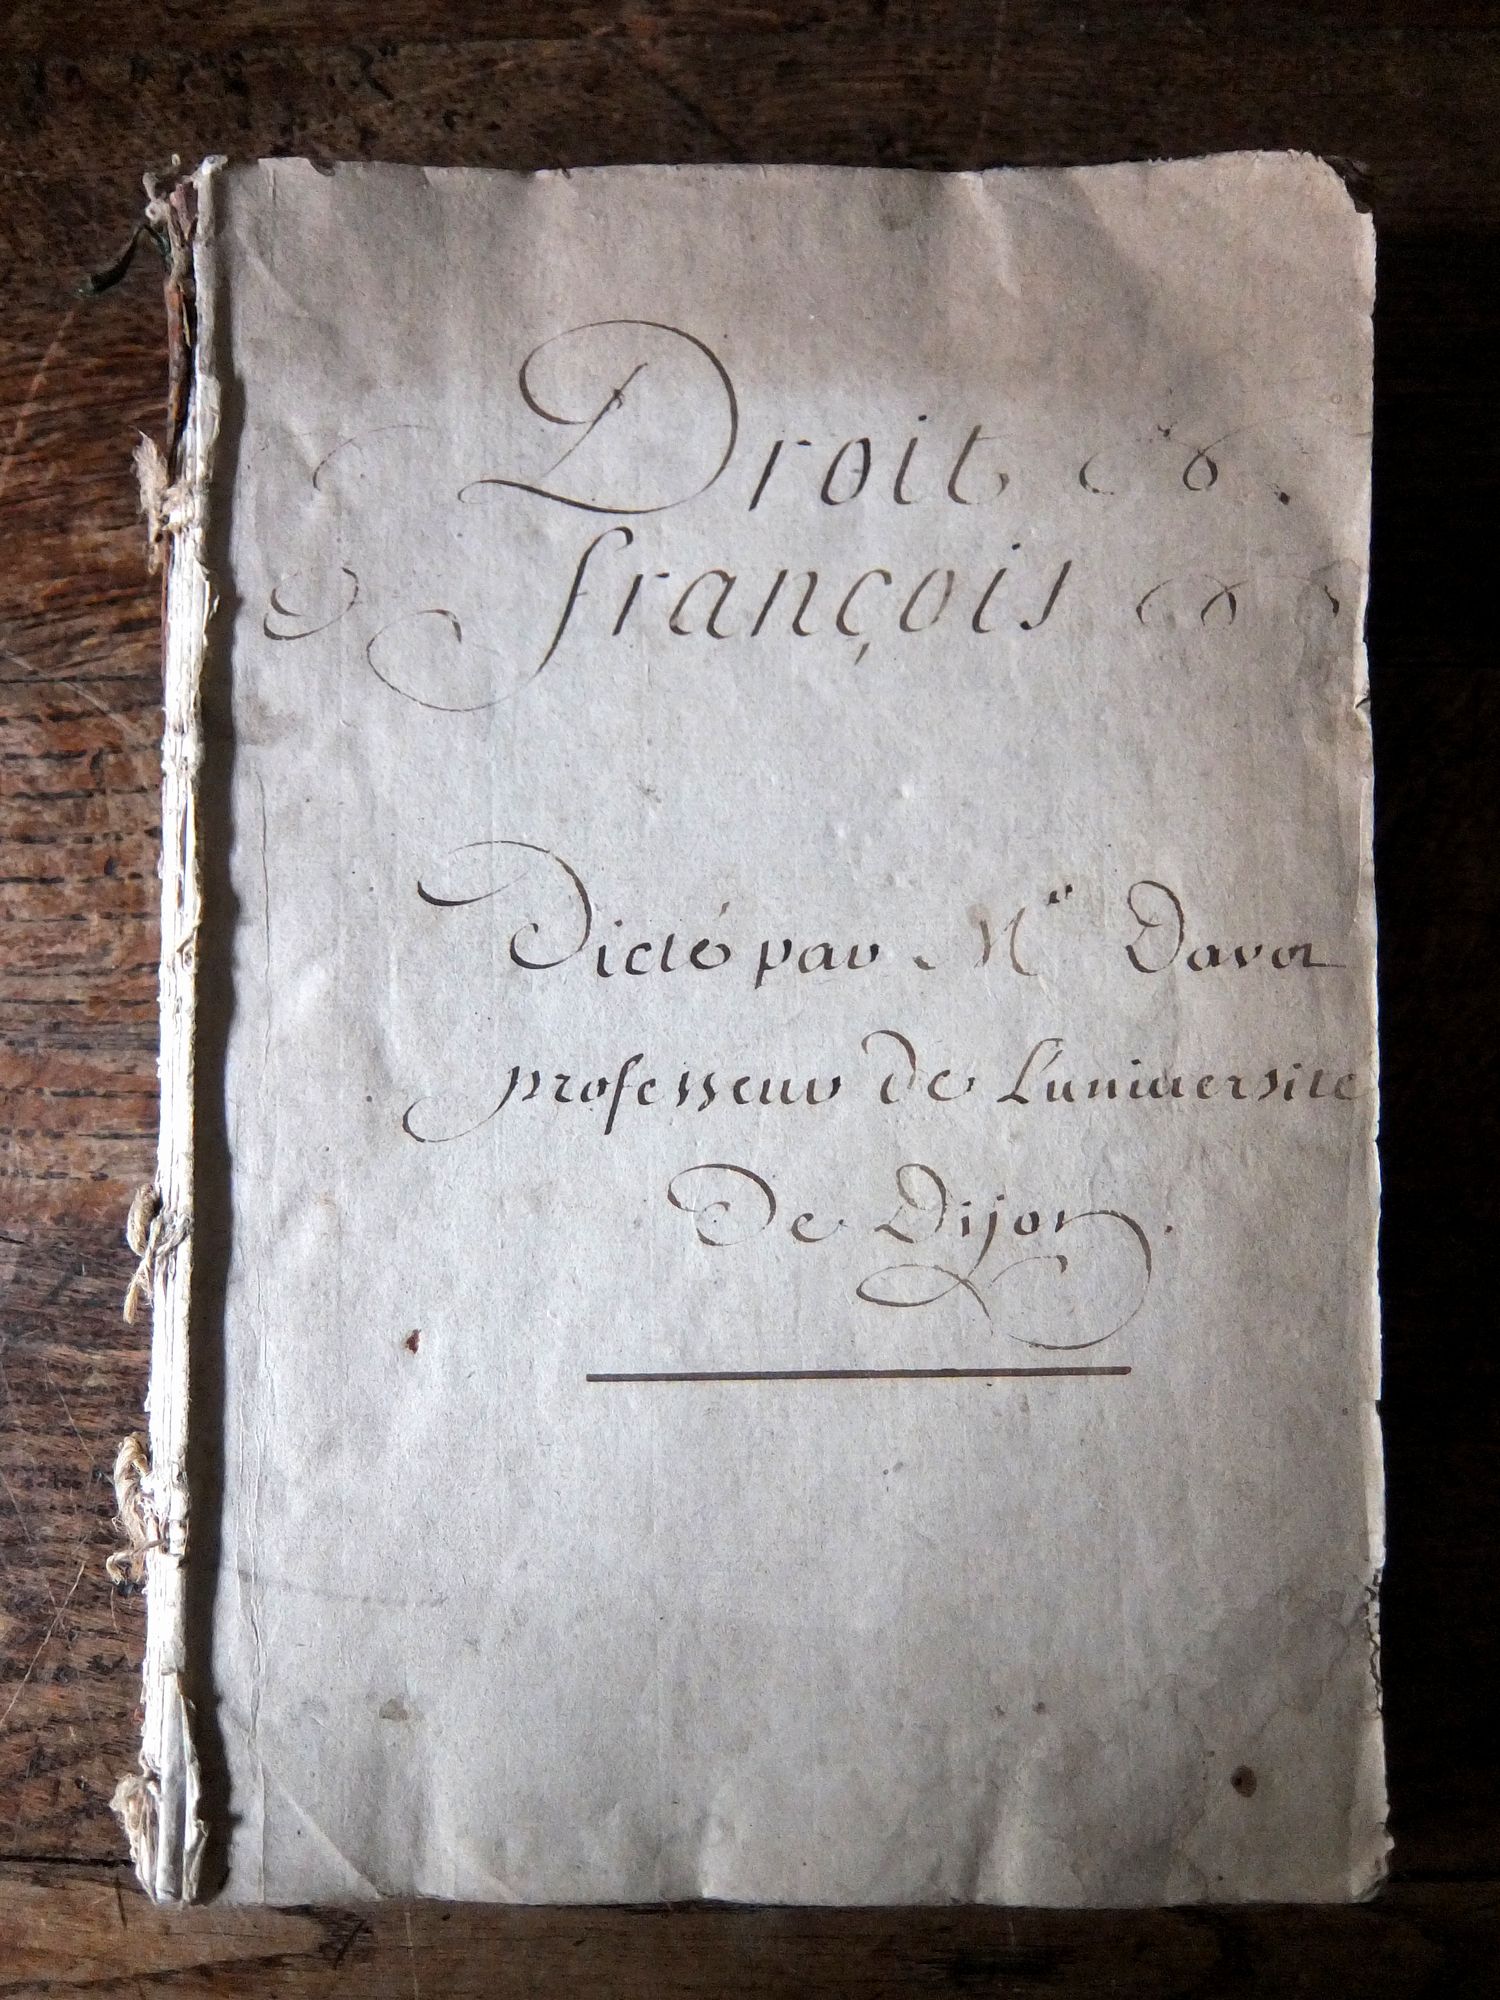 Droit
françois
Dicté par Mr Davot
professeur de L'université
De Dijon.